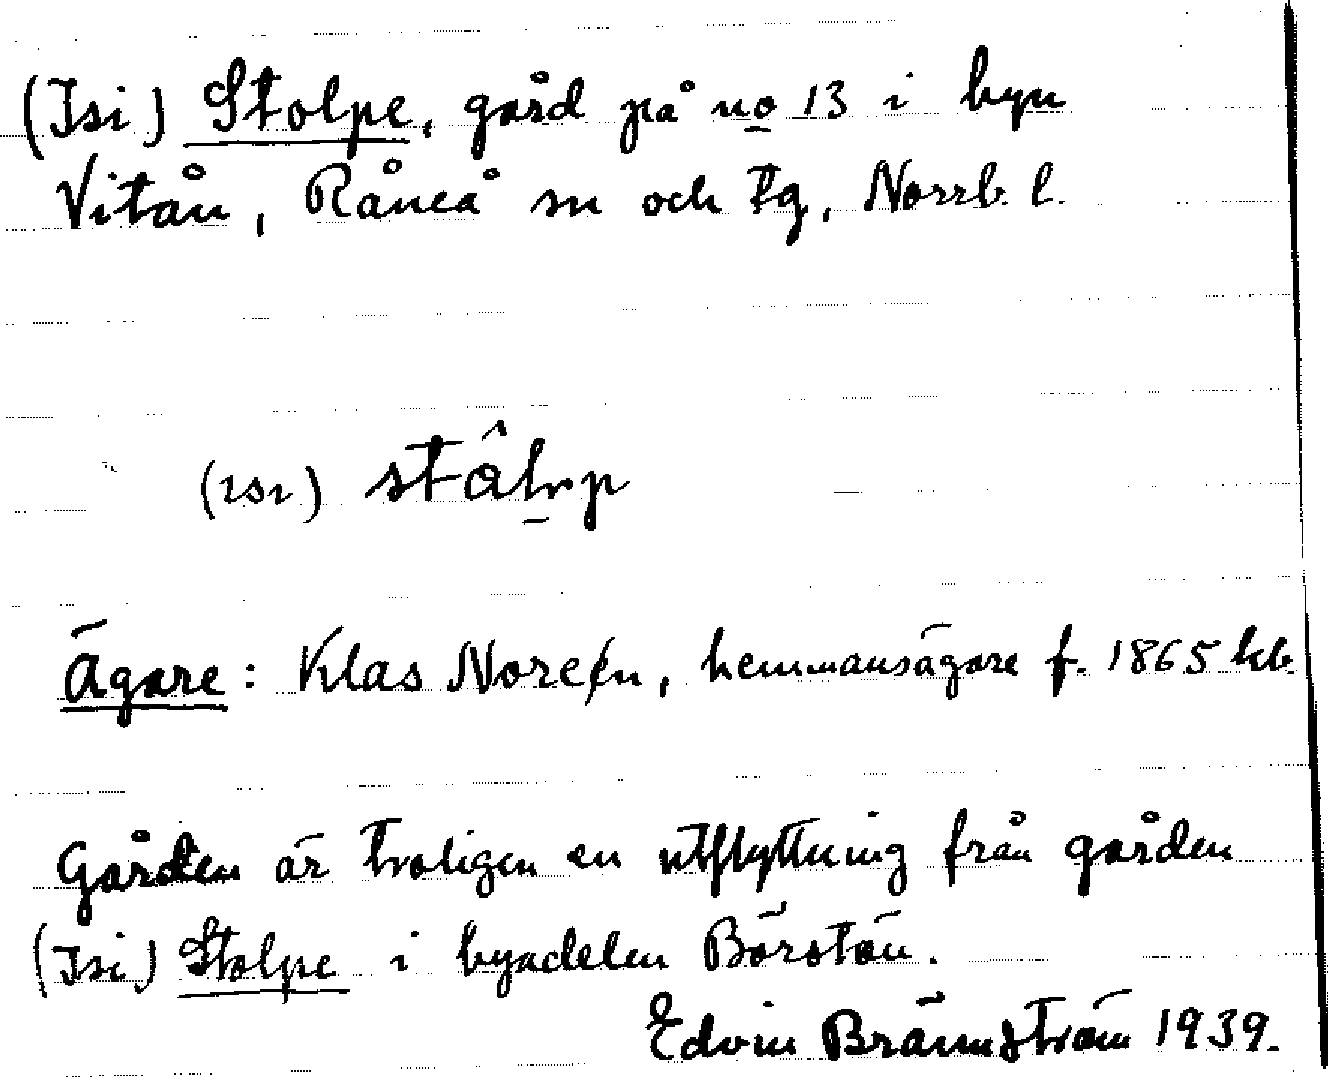 (Isi) Stolpe, gård på no 13 i byn
Vitån, Råneå sn och tg, Norrb. l.
(ısı)
Ägare: Klas Noreen, hemmansägare f. 1865 kb.
Gården är troligen en utflyttning från gården
(Isi) Stolpe i byadelen Börstön.
Edvin Brännström 1939.